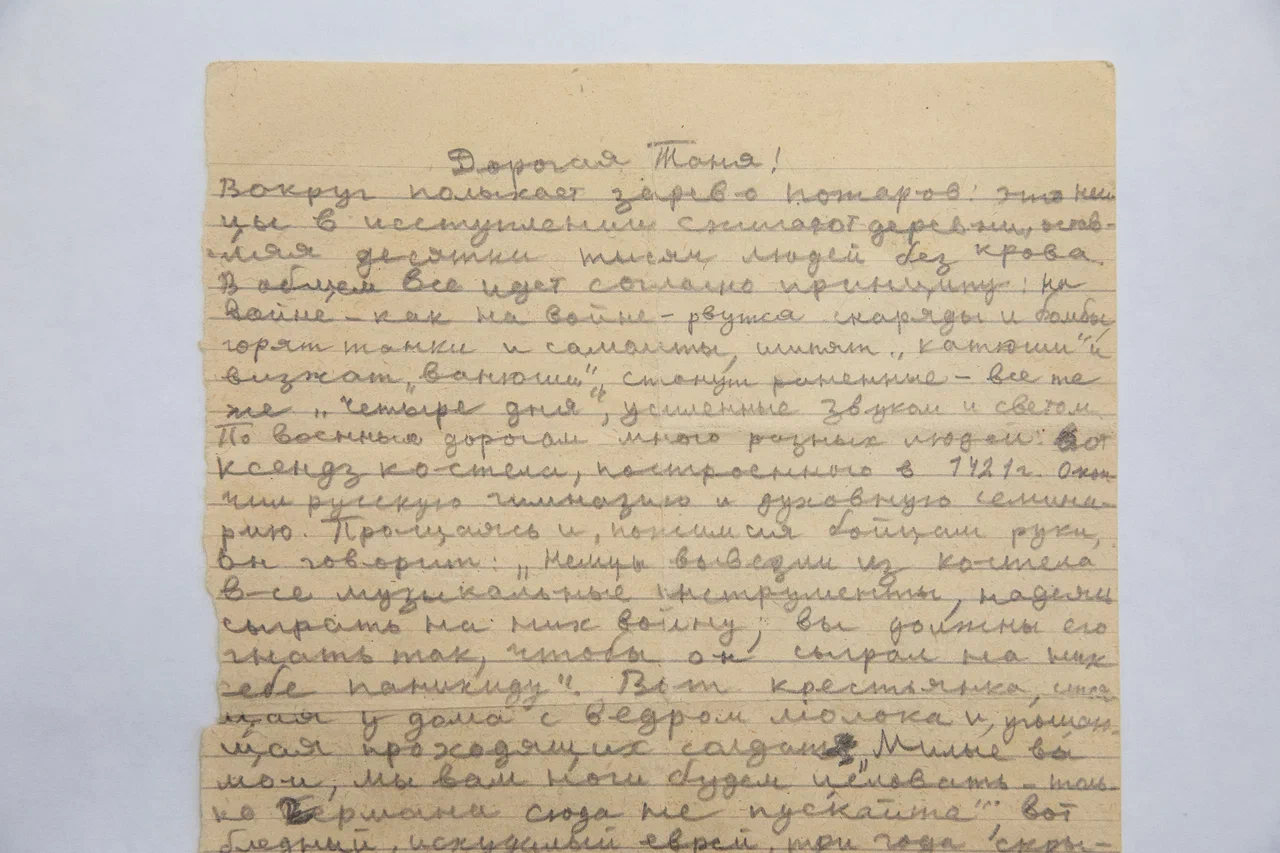 Дорогая Таня!
Вокруг полыхает зарево пожаров: это нем-
цы в исступлении сжигают деревни, остав-
ляя десятки тысяч людей без крова.
В общем все идет согласно принципу: на
войне – как на войне – рвутся снаряды и бомбы,
горят танки и самолеты, шипят „катюши" и
визжат „ванюши", стонут раненные – все те
же „четыре дня", усиленные звуком и светом.
По военным дорогам много разных людей. Вот
ксендз костела, построенного в 1421 г. Окон
чил русскую гимназию и духовную семина-
рию. Прощаясь и, пожимая бойцам руки,
он говорит: „Немцы вывезли из костела
все музыкальные инструменты, надеясь
сыграть на них войну, вы должны его
гнать так, чтобы он сыграл на них
себе панихиду". Вот крестьянка, стоя
щая у дома с ведром молока и, угощаю-
щая проходящих солдат „Милые вы
мои, мы вам ноги будем целовать – толь-
ко Германа сюда не пускайте" Вот
бледный, исхудалый еврей, три года скры-